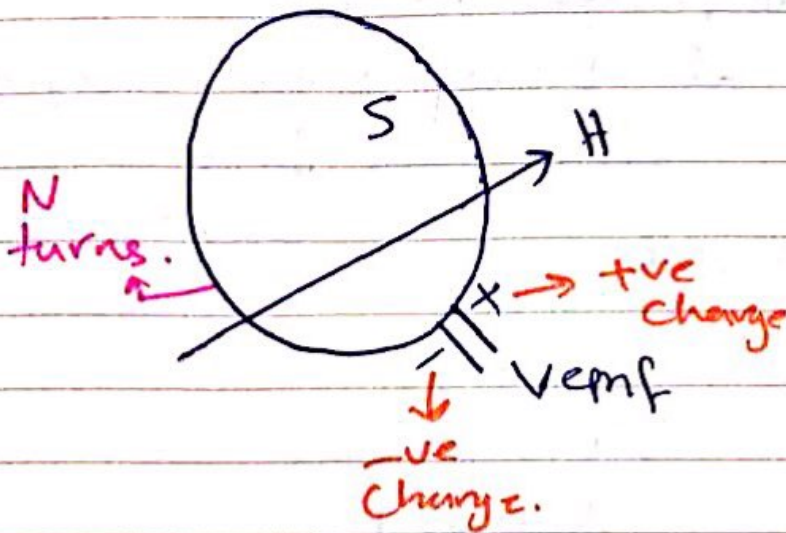 S
H
N
turns.
x → +ve
charge
Vemf
−
−ve
Charge.